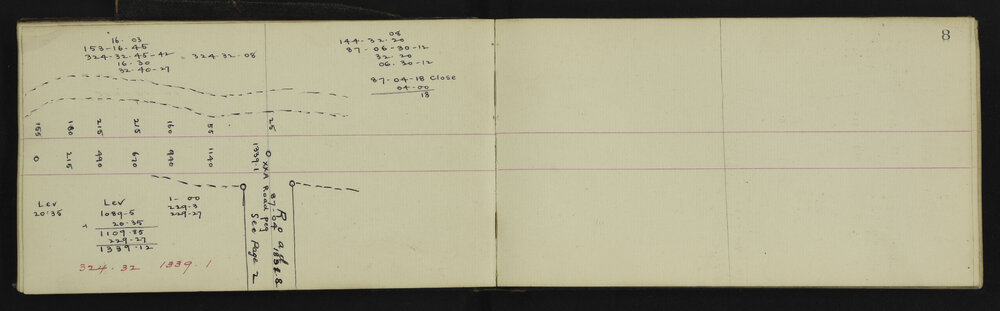 16. 03
153-16-45
324-32-45-42 = 324-32-08
16-30
32-40-27
08
144-32-20
87-06-30-12
32-20
06-30-12
87-04-18 Close
04-00
18
8
155 180 215 215 160 55 25
0 215 490 620 940 1140 1339.1
O XXA Road peg
87-04
See Page 2
Road
Lev
20.35
Lev
1089-5
20.35
1109.85
229-27
1339.12
1- 00
229-3
229-27
324.32 1339.1